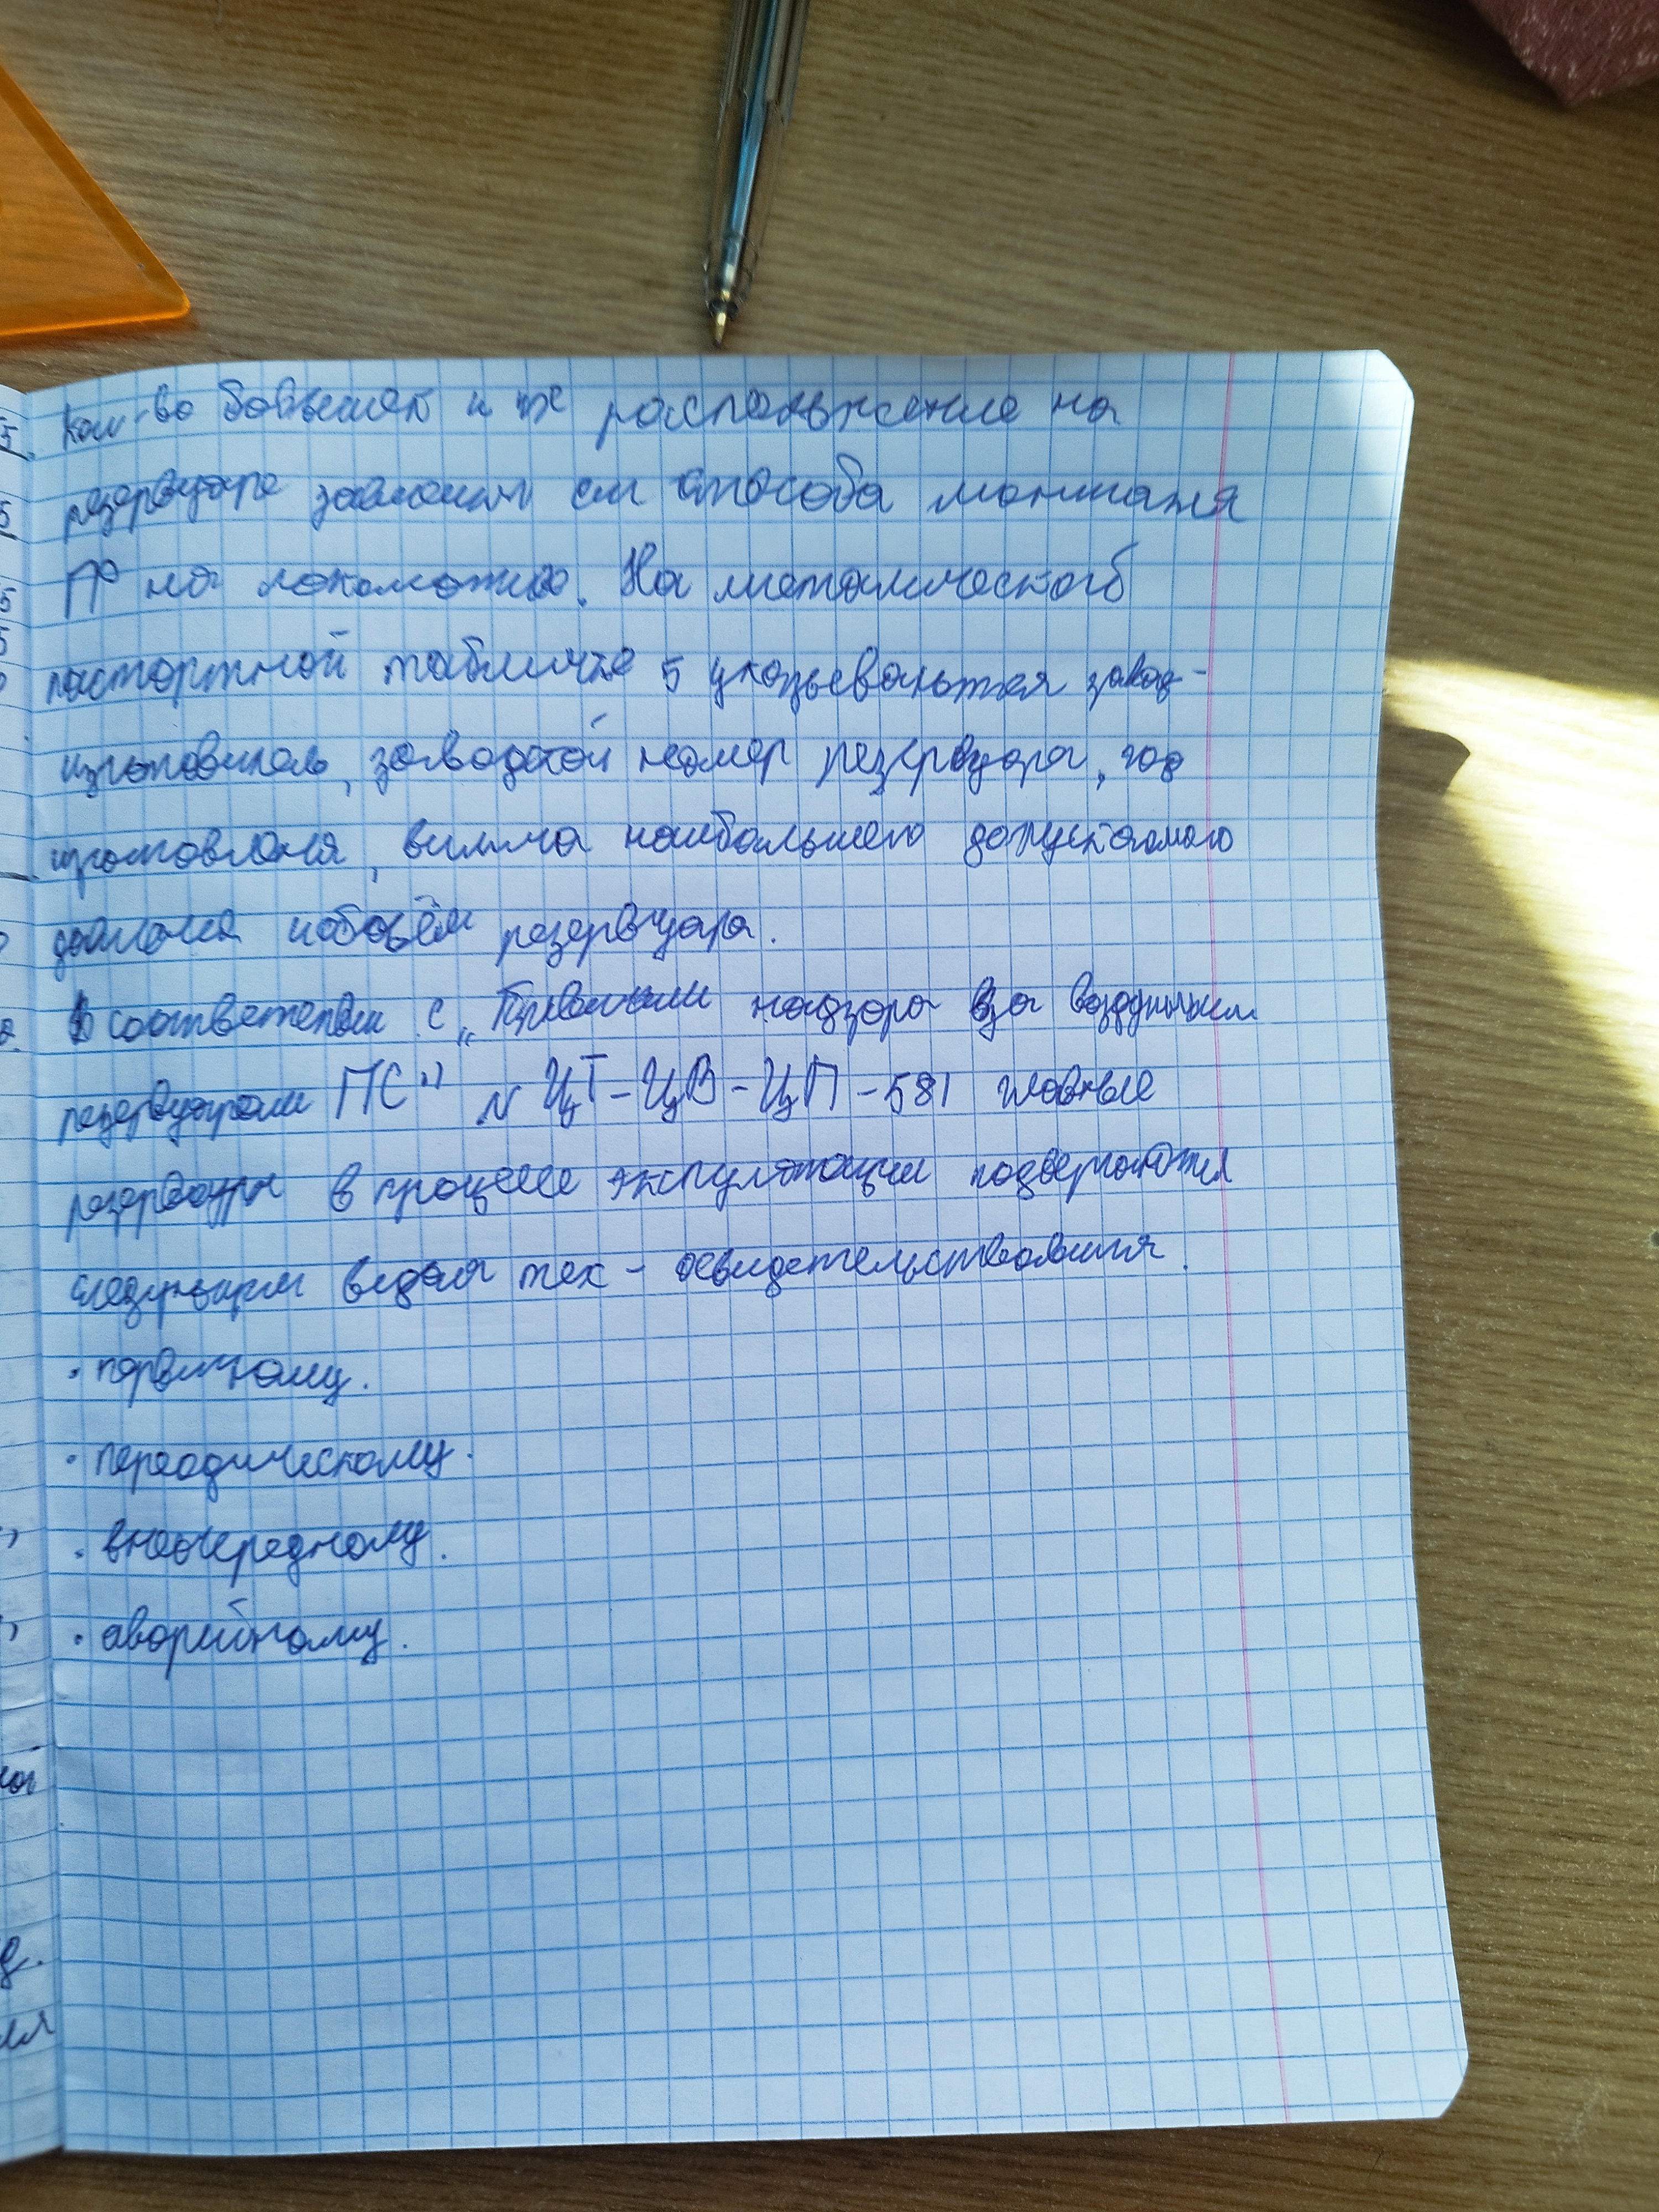 Кол-во бобышек и их расположение на
резервуаре зависит от способа монтажа
ГР на локомотив. На металической
паспортной табличке 5 указываются завод-
изготовитель, заводской номер резервуара, год
изготовления, величина наибольшего допускаемого
давления и объём резервуара.
В соответствии с „Правилами надзора за воздушными
резервуарами ПС" № ЦТ-ЦВ-ЦП-581 главные
резервуары в процессе эксплуатации подвергаются
следующим видам тех-освидетельствования.
· первичному.
· переодическому.
· внеочередному.
· аварийному.